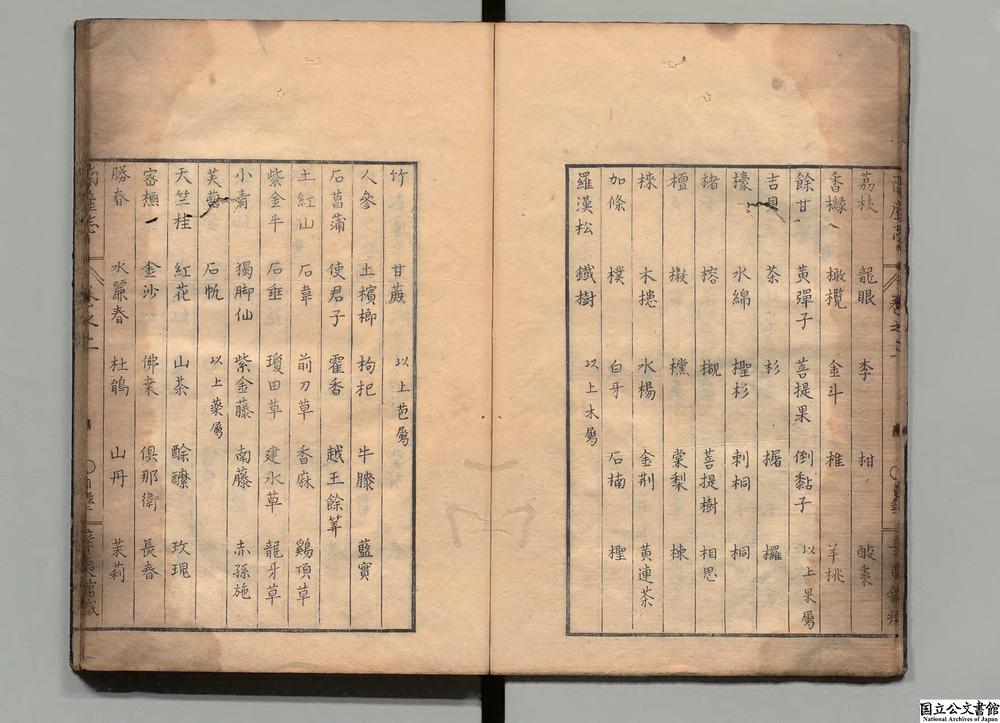 荔枝 龍眼 李 柑 酸棗
香櫞 橄欖 金斗 椎 羊桃
餘甘 黃彈子 菩提果 倒黏子 以上果屬
吉貝 茶 杉 椐 欏
檺 水綿 檉杉 刺桐 桐
楮 榕 櫬 菩提樹 相思
檀 檓 欓 棠梨 楝
楝 木槵 水楊 金荆 黃連茶
加條 樸 白牙 石楠 檉
羅漢松 鐵樹 以上木屬
竹 甘蔗 以上芭屬
人參 土檳榔 枸杞 牛膝 藍實
石菖蒲 使君子 霍香 越王餘筭
土紅仙 石韋 前刀草 香麻 鷄頂草
紫金牛 石垂 瓊田草 建水草 龍牙草
小青 獨脚仙 紫金藤 南藤 赤孫施
石帆 以上藥屬
天竺桂 紅花 山茶 酴醾 玫瑰
金沙 佛桑 俱那衛 長春
勝春 水麗春 杜鵑 山丹 茉莉
國立公文書館
National Archives of Japan